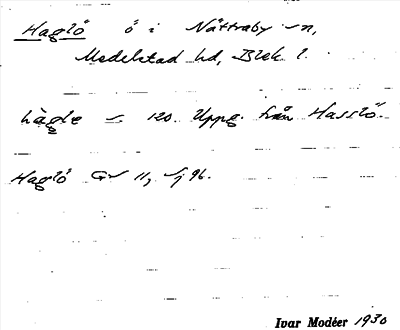 Haglö ö i Nättraby sn,
Medelstad hd, Blek l.
hàglе 120. Uppg. från Hasslö.
Haglö GV 11, 96.
Ivar Modéer 1930